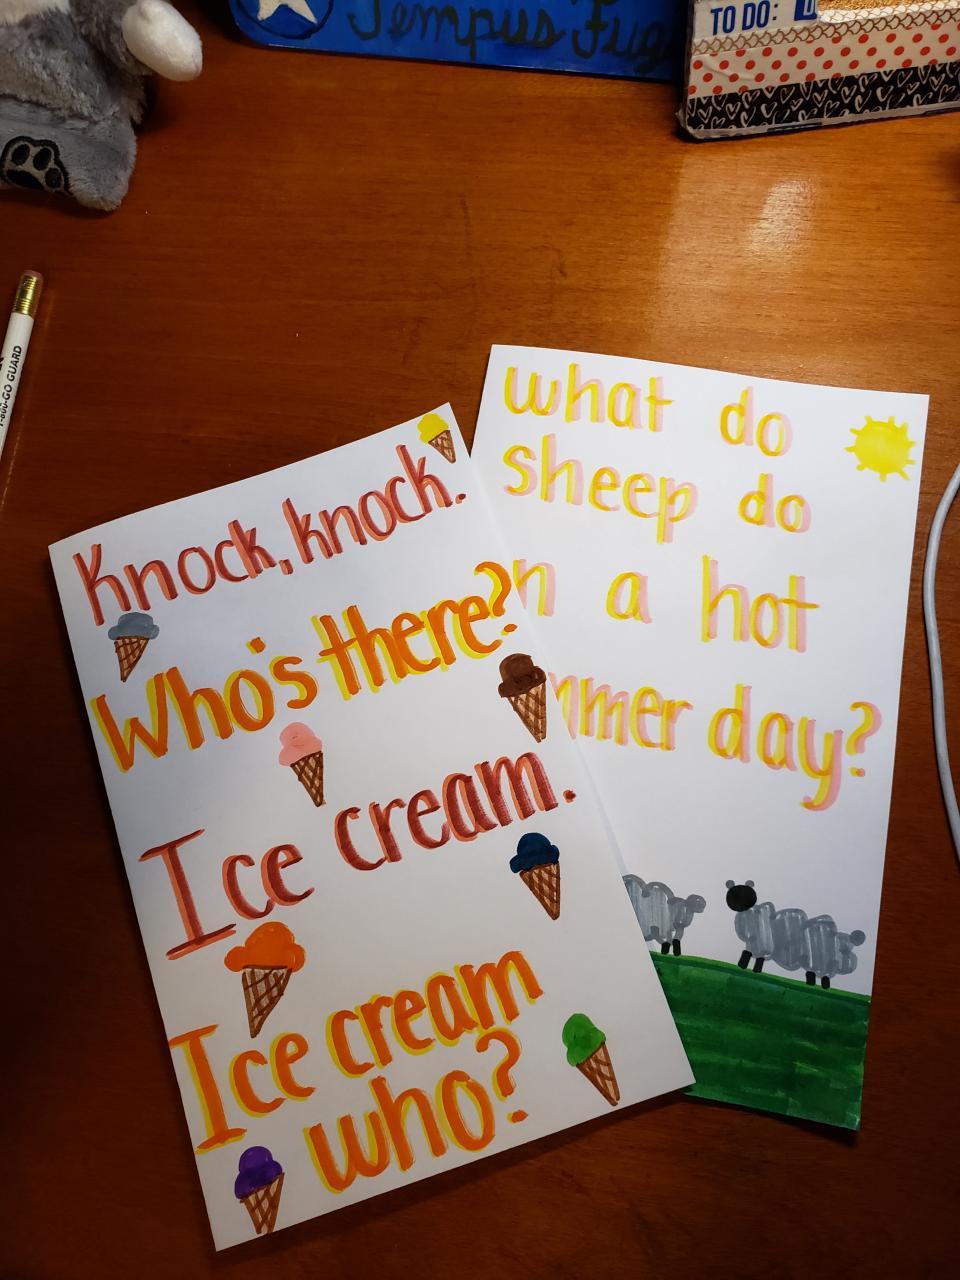 Tempus Fug
TO DO:
1-800-GO GUARD
Knock, knock.
Who's there?
Ice cream.
Ice cream
who?
what do
sheep do
n a hot
mmer day?